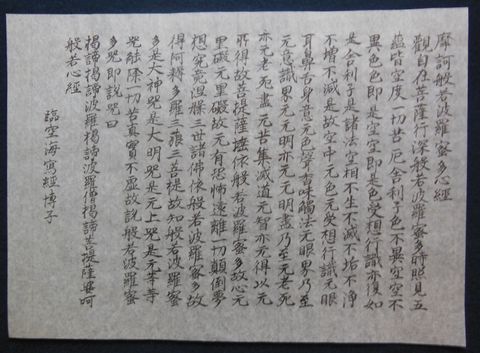 摩訶般若波羅蜜多心經
觀自在菩薩行深般若波羅蜜多時照見五
蘊皆空度一切苦厄舍利子色不異空空不
異色色即是空空即是色受想行識亦復如
是舍利子是諸法空相不生不滅不垢不淨
不增不減是故空中无色无受想行識无眼
耳鼻舌身意无色聲香味觸法无眼界乃至
无意識界无无明亦无无明盡乃至无老死
亦无老死盡无苦集滅道无智亦无得以无
所得故菩提薩埵依般若波羅蜜多故心无
罣礙无罣礙故无有恐怖遠離一切顛倒夢
想究竟涅槃三世諸佛依般若波羅蜜多故
得阿耨多羅三藐三菩提故知般若波羅蜜
多是大神咒是大明咒是无上咒是无等等
咒能除一切苦真實不虛故說般若波羅蜜
多咒即說咒曰
揭諦揭諦波羅揭諦波羅僧揭諦菩提薩婆訶
般若心經
臨空海寫經 博子